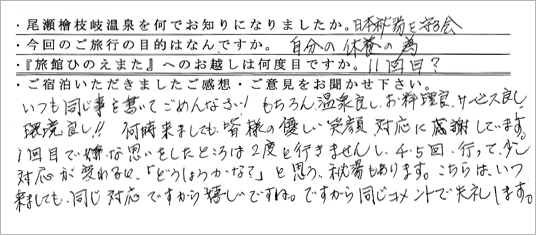 ・尾瀬檜枝岐温泉を何でお知りになりましたか。日本秘湯を守る会
・今回のご旅行の目的はなんですか。 自分の休養の為
・『旅館ひのえまた』へのお越しは何度目ですか。11回目？
・ご宿泊いただきましたご感想・ご意見をお聞かせ下さい。
いつも同じ事を書いてごめんなさい！もちろん温泉良し、お料理良、サービス良し、
環境良し!! 何時来ましても皆様の優しい笑顔、対応に感謝しています。
1回目で嫌な思いをしたところは2度と行きませんし、4・5回行って、少し
対応が変わると、「どうしようかな？」と思う、秘湯もあります。こちらは、いつ
来ましても、同じ対応ですから嬉しいですね。ですから同じコメントで失礼します。